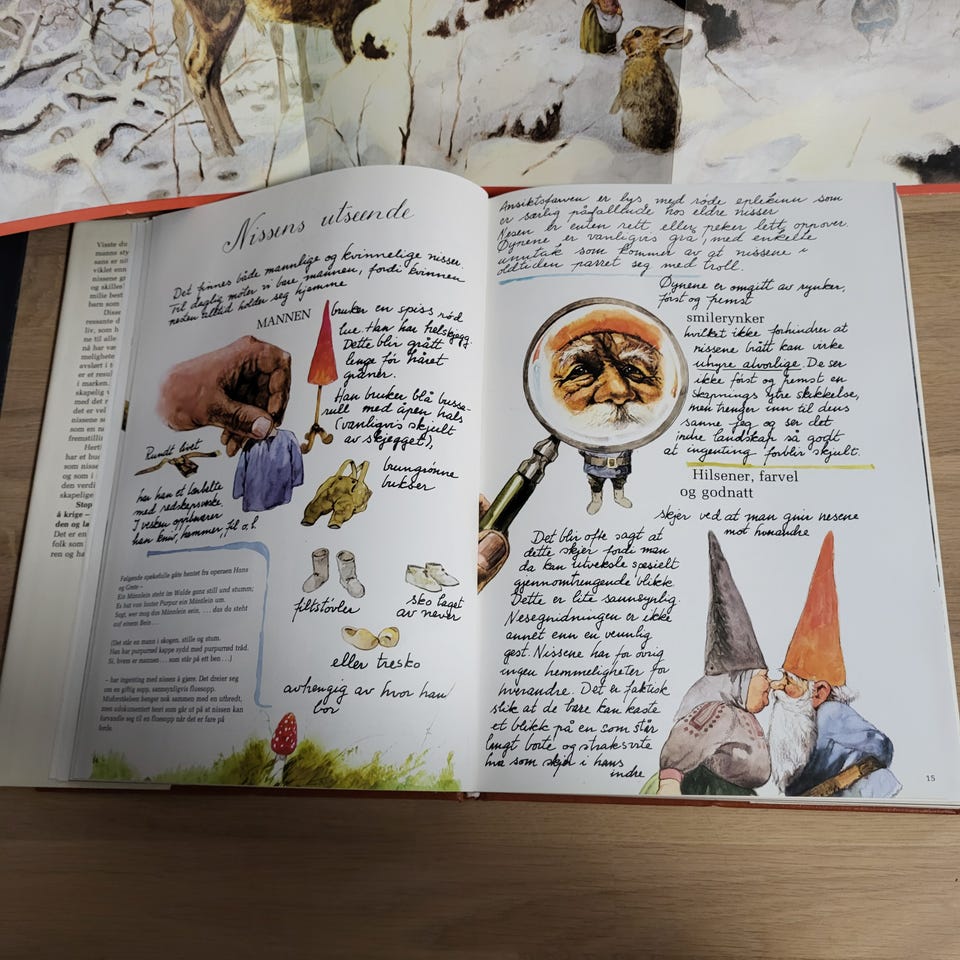 Visste du
manns sty
sans er nil
viklet enn
nissene gr
og skilles
milie best
barn som
Disse
ressante d
liv, som h
me til alle
nå har væ
melighete
avslørt i t
er et resul
i marken.
skapelig v
med det r
det er vel
nissene s
som en na
fremstillin
Hert
har et bu
som nisse
og som i
den verdi
skapelige
Stop
å krige –
den og la
Det er en
folk som
ren og ha
Nissens utseende
Det finnes både mannlige og kvinnelige nisser.
Til daglig møter vi bare mannen, fordi kvinnen
nesten alltid holder seg hjemme
MANNEN
bruker en spiss rød
lue. Han har helskjegg.
Dette blir grått
lenge før håret
gråner.
Han bruker blå bussa-
rull med åpen hals
(vanligvis skjult
av skjegget),
brungrønne
bukser
Rundt livet
har han et lærbelte
med redskapsveske.
I vesken oppbevarer
han kniv, hammer, fil o.l.
filtstøvler
sko laget
av never
eller tresko
avhengig av hvor han
bor
Følgende spøkefulle gåte hentet fra operaen Hans
og Grete –
Ein Männlein steht im Walde ganz still und stumm;
Es hat von lauter Purpur ein Mäntlein um.
Sagt, wer mag das Männlein sein. . . . das da steht
auf einem Bein . . .
(Det står en mann i skogen, stille og stum.
Han har purpurrød kappe sydd med purpurrød tråd.
Si, hvem er mannen . . . som står på ett ben . . .)
– har ingenting med nissen å gjøre. Det dreier seg
om en giftig sopp, sannsynligvis fluesopp.
Misforståelsen henger nok sammen med en utbredt,
men udokumentert teori som går ut på at nissen kan
forvandle seg til en fluesopp når det er fare på
ferde.
Ansiktsfarven er lys med røde eplekinn som
er særlig påfallende hos eldre nisser
Nesen er enten rett eller peker lett oppover.
Øynene er vanligvis grå, med enkelte
unntak som kommer av at nissene i
oldtiden parret seg med troll.
Øynene er omgitt av rynker,
først og fremst
smilerynker
hvilket ikke forhindrer at
nissene brått kan virke
uhyre alvorlige. De ser
ikke først og fremst en
skapnings ytre skikkelse,
men trenger inn til dens
sanne jeg og ser det
indre landskap så godt
at ingenting forblir skjult.
Hilsener, farvel
og godnatt
skjer ved at man gnir nesene
mot hverandre
Det blir ofte sagt at
dette skjer fordi man
da kan utveksle spesielt
gjennomtrengende blikk.
Dette er lite sannsynlig.
Nesegnidningen er ikke
annet enn en vennlig
gest. Nissene har for øvrig
ingen hemmeligheter for
hverandre. Det er faktisk
slik at de bare kan kaste
et blikk på en som står
langt borte og straks vite
hva som skjer i hans
indre
15